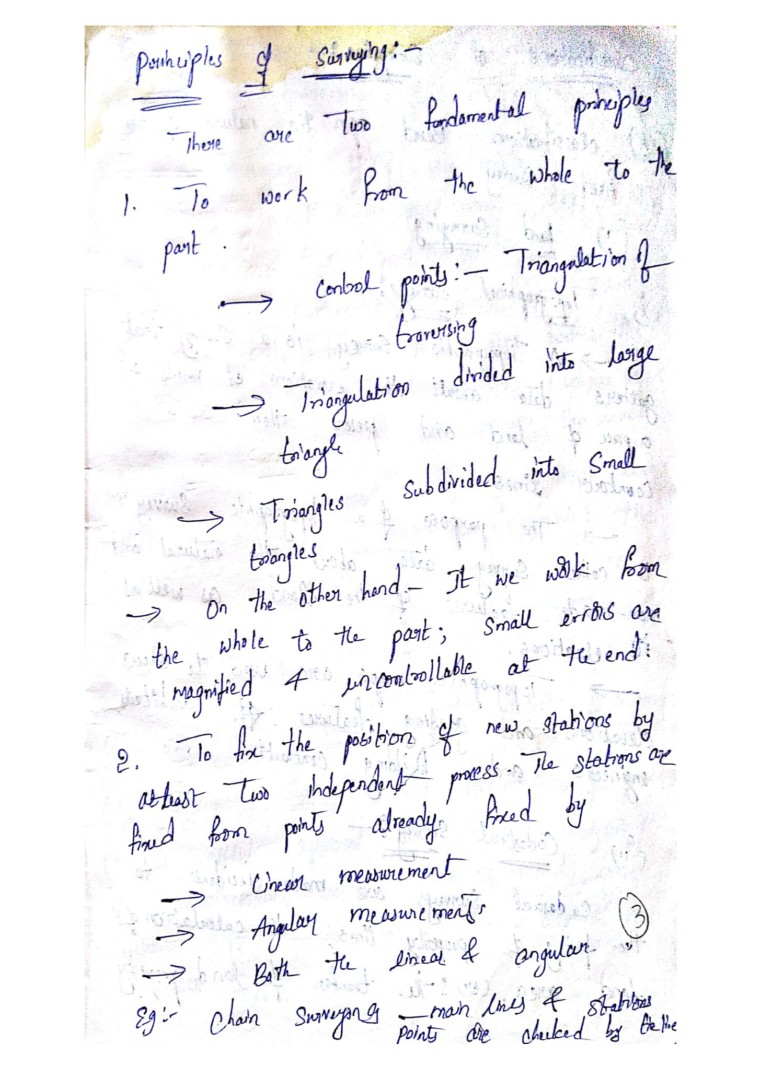 Principles of Surveying:-
There are Two fundamental principles
1. To work from the whole to the
part.
→ Control points:- Triangulation of
traversing
→ Triangulation divided into large
triangle
→ Triangles subdivided into Small
triangles
→ On the other hand - If we work from
the whole to the part; Small errors are
magnified & uncontrollable at the end:
2. To fix the position of new stations by
atleast Two independent process The stations are
fixed from points already fixed by
→ Linear measurement
→ Angular measurements
→ Both the linear & angular.
3
Eg:- Chain Surveying - main lines & stations
points are checked by tie line